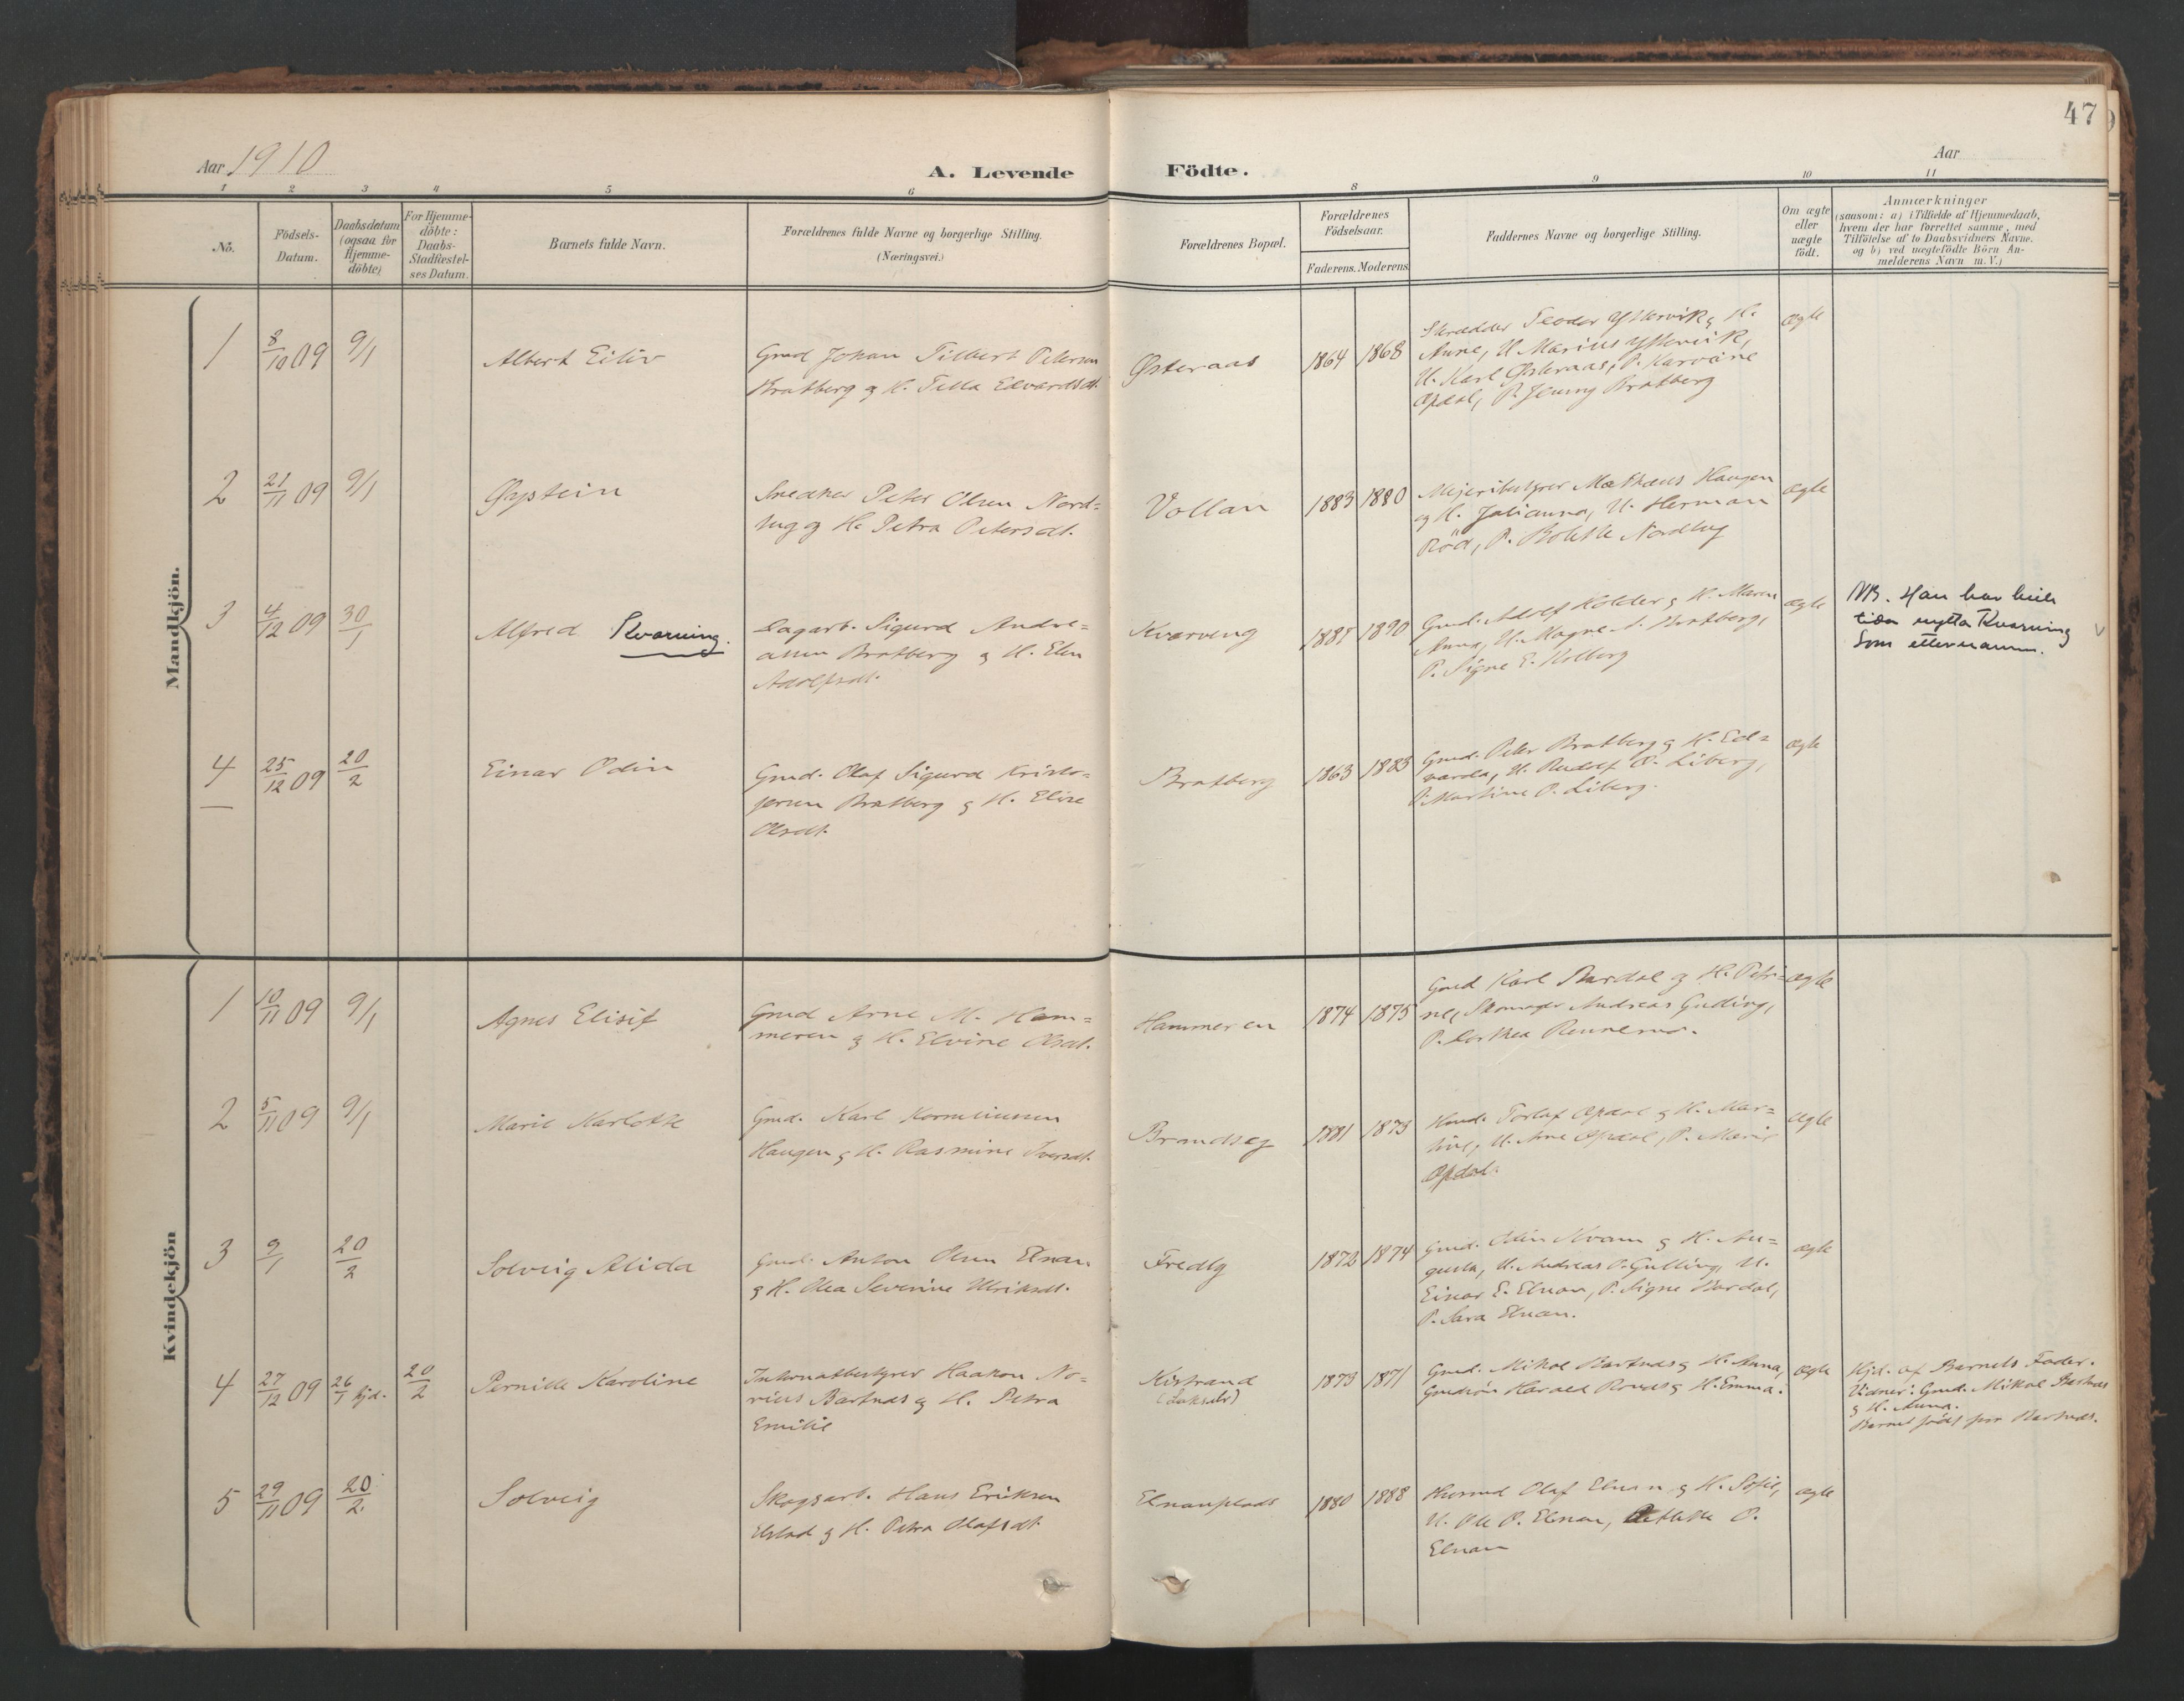 47
Aar 1910
A. Levende
Födte.
Aar
1 2 3 4 5 6 8 9 10 11
No.
Födsels-
Datum.
Daabsdatum
(ogsaa for
Hjemme-
döbte)
For Hjemme-
döbte:
Daabs-
Stadfæstel-
ses Datum.
Barnets fulde Navn.
Forældrenes fulde Navne og borgerlige Stilling.
(Næringsvei.)
Forældrenes Bopæl.
Forældrenes
Födselsaar.
Faderens. Moderens.
Faddernes Navne og borgerlige Stilling.
Om ægte
eller
uægte
födt.
Anmærkninger
(saasom: a) i Tilfælde af Hjemmedaab,
hvem der har forrettet samme, med
Tilföielse af to Daabsvidners Navne.
og b) ved uægtefödte Börn An-
melderens Navn m. V.)
Mandkjön.
1
8/10 09
9/1
Albert Eiliv
Gmd Johan Tilbert Petersen
Bratberg og H. Tella Edvardsdt.
Østeraas
1864
1868
Skrædder Teodor Yttervik og H.
Anne, U. Marius Yttervik,
U. Karl Østeraas, P. Karoline
Opdal, P. Jenny Bratberg
ægte
2
21/11 09
9/1
Øystein
Snedker Peter Olsen Nord=
hug og H. Petra Petersdt.
Vollan
1883
1880
Mejeribestyrer Mathæus Haugen
og H. Julianna, U. Herman
Röd, P. Bolette Nordhug
ægte
3
4/12 09
30/1
Alfred Kvarving.
Sagarb. Sigurd Andre=
assen Bratberg og H. Elen
Adolfsdt.
Kvarving
1885
1890
Gmd. Adolf Holder og H. Maren
Anna, U. Magne A. Bratberg,
P. Signe E. Kolberg
ægte
NB. Han har heile
tida nytta Kvarving
Som etternamn.
4
25/12 09
20/2
Einar Odin
Gmd. Olaf Sigurd Kristo=
fersen Bratberg og H. Elise
Olsdt.
Bratberg
1863
1883
Gmd. Peter Bratberg og H. Ed=
varda, U. Rudolf O. Liberg,
P. Martine P. Liberg.
ægte
Kvindekjön
1
10/11 09
9/1
Agnes Elisif
Gmd Arne M. Ham=
meren og H. Elvine Olsdt.
Hammeren
1874
1875
Gmd Karl Bardal og H. Petri=
ne, Skomager Andreas Guding,
P. Dorthea Rennemo.
ægte
2
5/11 09
9/1
Marie Karlotte
Gmd. Karl Korneliussen
Haugen og H. Rasmine Iversdt.
Brandseg
1881
1873
Husmd. Torlaf Opdal og H. Mar=
tine, U. Arne Opdal, P. Marie
Opdal.
ægte
3
9/1
20/2
Solveig Alida
Gmd. Anton Olsen Elnan
og H. Olea Severine Ulriksdt.
Fredly
1872
1874
Gmd. Odin Kvam og H. Au=
gusta, U. Andreas P. Gulling, U.
Einar E. Elnan, P. Signe Bardal,
P. Sara Elnan.
ægte
4
27/12 09
26/1 hjd.
20/2
Pernille Karoline
Internatbestyrer Haakon No=
rius Bartnes og H. Petra
Emilie
Kistrand
(Lakselv)
1873
1871
Gmd. Mikal Bartnes og H. Anna,
Gmdsön Harald Rones og H. Emma.
ægte
Hjd. af Barnets Fader.
Vidner: Gmd. Mikal Bartnes
og H. Anna.
Barnet födt paa Bartnes.
5
29/11 09
20/2.
Solveig
Skogsarb. Hans Eriksen
Elstad og H. Petra Olafsdt.
Elnanplads
1880
1888
Husmd Olaf Elnan og H. Sofie,
U. Ole P. Elnan, P.
Elnan
ægte